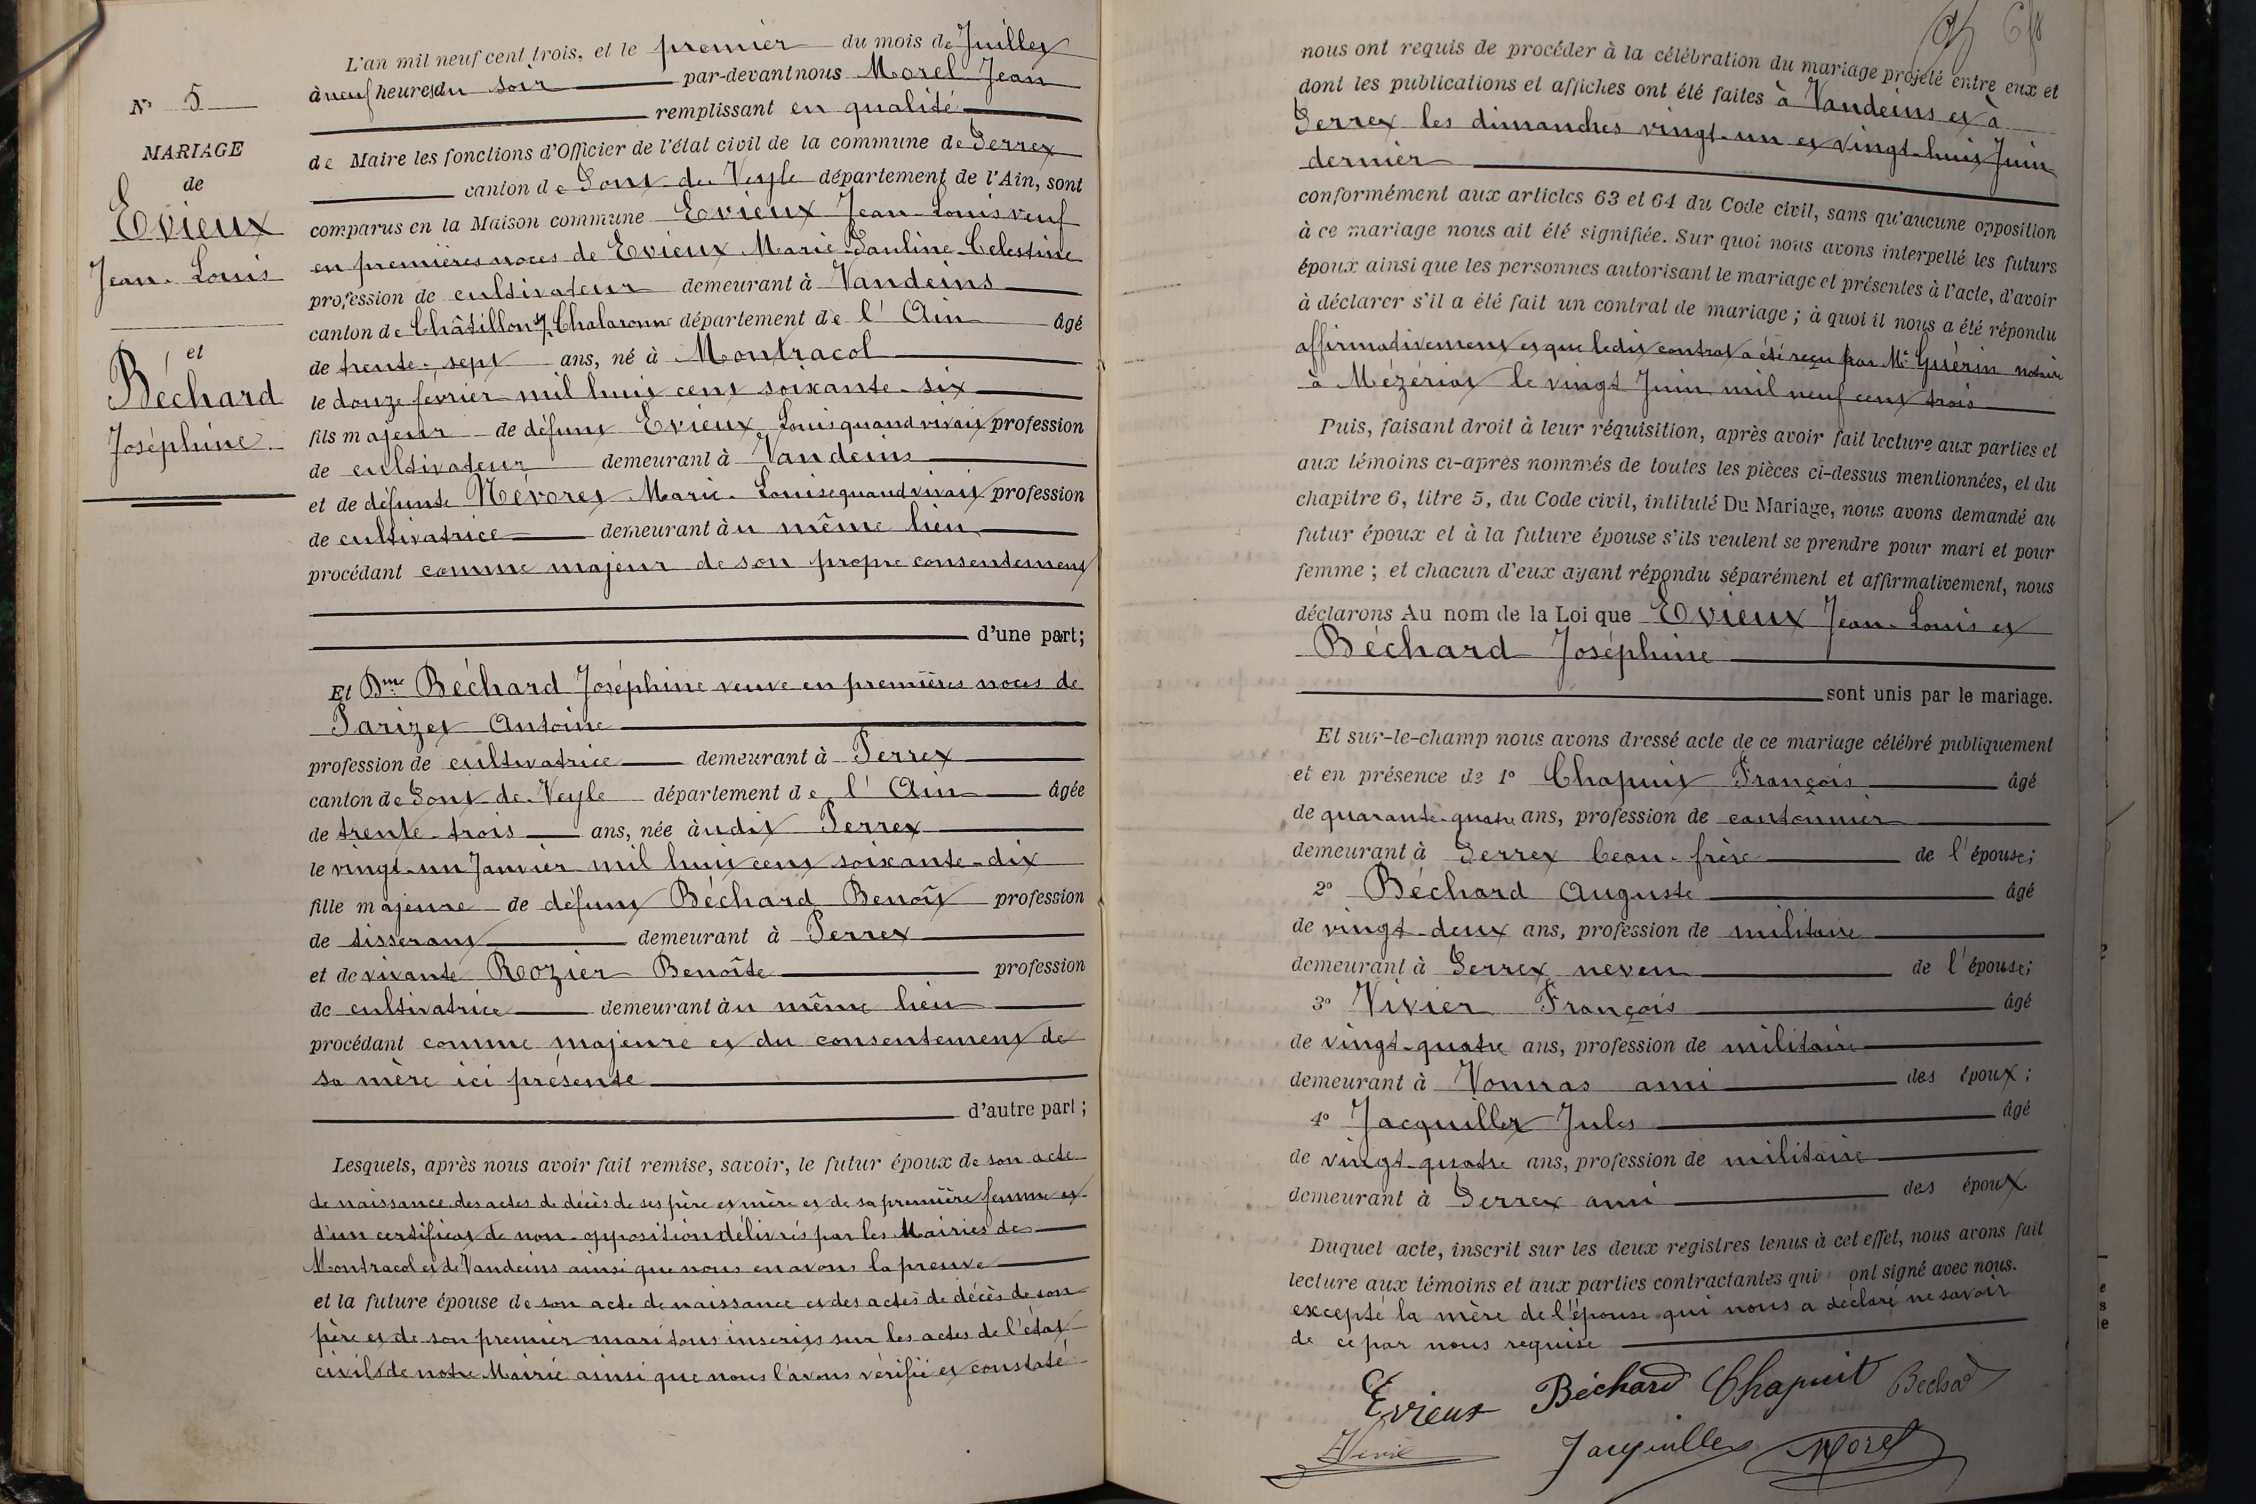 N° 5
MARIAGE
de
Evieux
Jean-Louis
et
Béchard
Joséphine
L'an mil neuf cent trois, et le premier du mois de Juillet
à neuf heures du soir par-devant nous Morel Jean
remplissant en qualité
de Maire les fonctions d'Officier de l'état civil de la commune de Perrex
canton de Pont-de-Veyle département de l'Ain, sont
comparus en la Maison commune Evieux Jean-Louis veuf
en premières noces de Evieux Marie-Pauline-Celestine
profession de cultivateur demeurant à Vandeins
canton de Châtillon s/ Chalaronne département de l'Ain âgé
de trente-sept ans, né à Montracol
le douze février mil huit cent soixante-six
fils majeur de défunt Evieux Louis quand vivait profession
de cultivateur demeurant à Vandeins
et de défunte Névoret Marie-Louise quand vivait profession
de cultivatrice demeurant au même lieu
procédant comme majeur de son propre consentement
d'une part;
Et Dme Béchard Joséphine veuve en premières noces de
Parizet Antoine
profession de cultivatrice demeurant à Perrex
canton de Pont-de-Veyle département de l'Ain âgée
de trente-trois ans, née àudit Perrex
le vingt-un Janvier mil huit cent soixante-dix
fille majeure de défunt Béchard Benoît profession
de tisserant demeurant à Perrex
et de vivante Rozier Benoîte profession
de cultivatrice demeurant àu même lieu
procédant comme majeure et du consentement de
sa mère ici présente
d'autre part;
Lesquels, après nous avoir fait remise, savoir, le futur époux de son acte
de naissance des actes de décès de ses père et mère et de sa première femme et
d'un certificat de non-opposition délivrés par les Mairies de
Montracol et de Vandeins ainsi que nous en avons la preuve
et la future épouse de son acte de naissance et des actes de décès de son
père et de son premier mari tous inscrits sur les actes de l'état
civils de notre Mairie ainsi que nous l'avons vérifié et constaté
nous ont requis de procéder à la célébration du mariage projeté entre eux et
dont les publications et affiches ont été faites à Vandeins et à
Perrex les dimanches vingt-un et vingt-huit Juin
dernier
conformément aux articles 63 et 64 du Code civil, sans qu'aucune opposition
à ce mariage nous ait été signifiée. Sur quoi nous avons interpellé les futurs
époux ainsi que les personnes autorisant le mariage et présentes à l'acte, d'avoir
à déclarer s'il a été fait un contrat de mariage; à quoi il nous a été répondu
affirmativement et que ledit contrat a été reçu par Me Guérin notaire
à Mézériat le vingt Juin mil neuf cent trois
Puis, faisant droit à leur réquisition, après avoir fait lecture aux parties et
aux témoins ci-après nommés de toutes les pièces ci-dessus mentionnées, et du
chapitre 6, titre 5, du Code civil, intitulé Du Mariage, nous avons demandé au
futur époux et à la future épouse s'ils veulent se prendre pour mari et pour
femme; et chacun d'eux ayant répondu séparément et affirmativement, nous
déclarons Au nom de la Loi que Evieux Jean-Louis et
Béchard Joséphine
sont unis par le mariage.
Et sur-le-champ nous avons dressé acte de ce mariage célébré publiquement
et en présence de 1° Chapuis François âgé
de quarante-quatre ans, profession de cantonnier
demeurant à Perrex beau-frère de l'épouse;
2° Béchard Auguste âgé
de vingt-deux ans, profession de militaire
demeurant à Perrex neveu de l'épouse;
3° Vivier François âgé
de vingt-quatre ans, profession de militaire
demeurant à Vonnas ami des époux;
4° Jacquillet Jules âgé
de vingt-quatre ans, profession de militaire
demeurant à Perrex ami des époux
Duquel acte, inscrit sur les deux registres tenus à cet effet, nous avons fait
lecture aux témoins et aux parties contractantes qui ont signé avec nous.
excepté la mère de l'épouse qui nous a déclaré ne savoir
de ce par nous requise
Evieux Béchard Chapuit Bechard
Jacquillet Morel